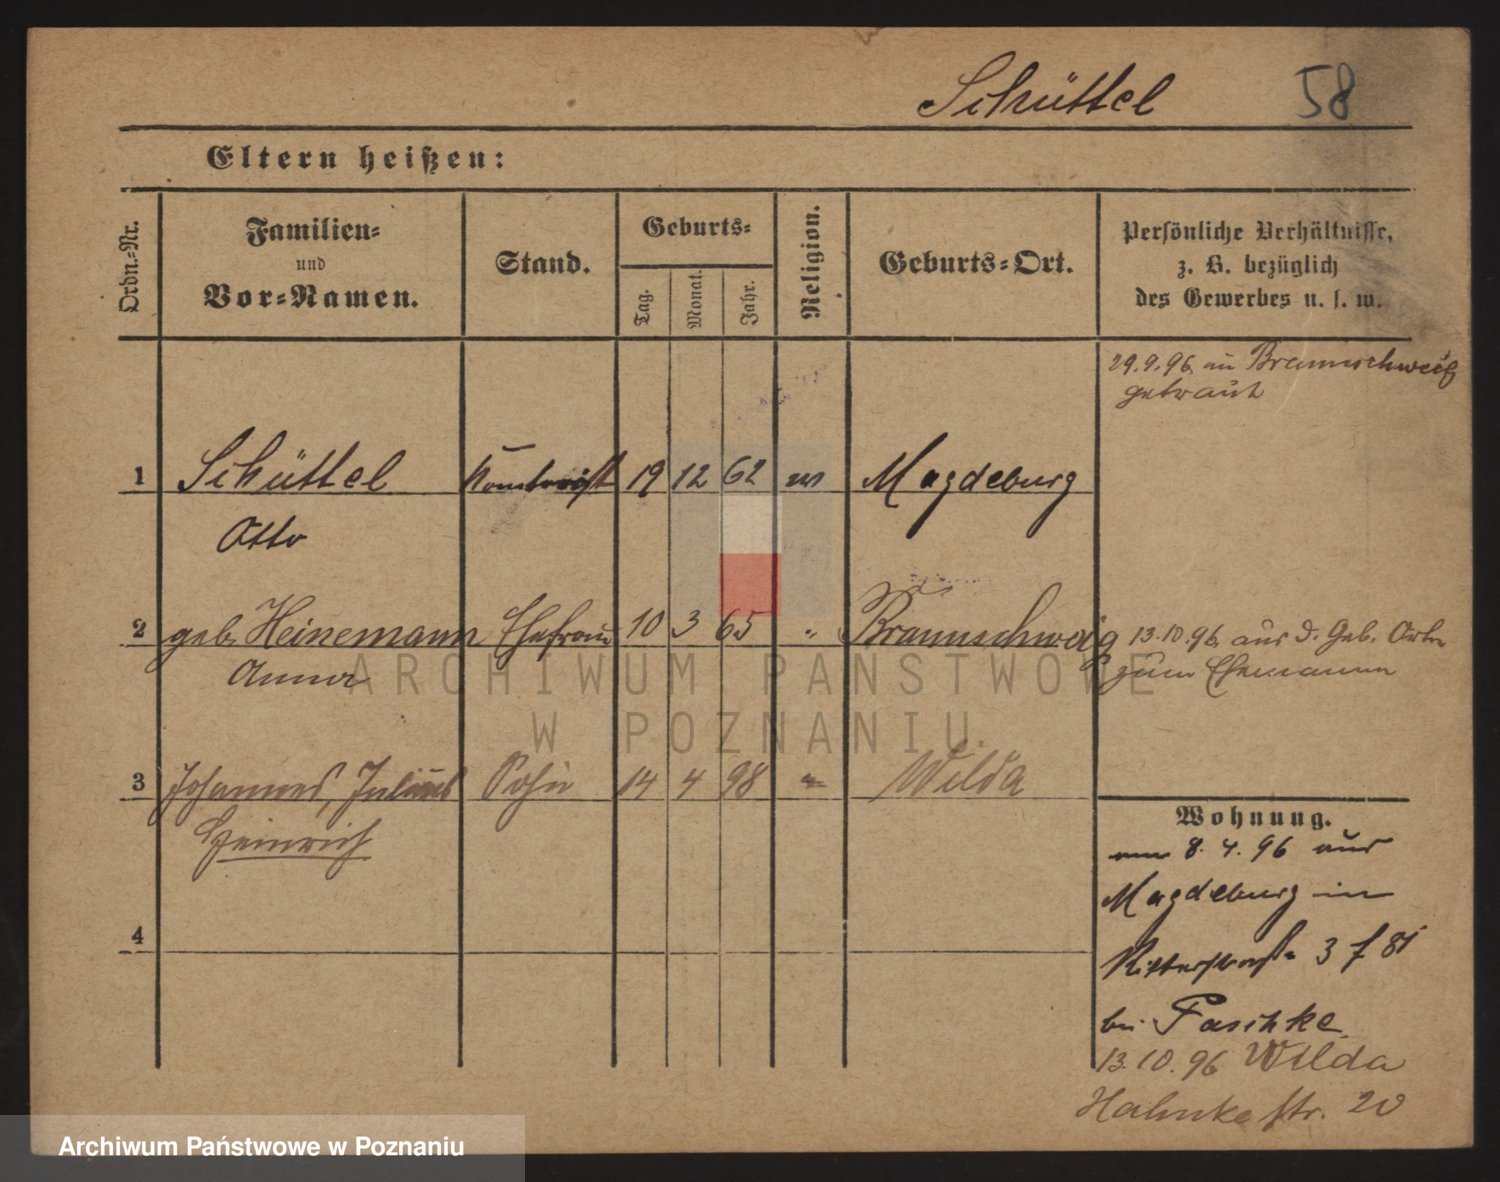 Schüttel 58
Eltern heißen:
Ordn.-Nr.
Familien-
und
Vor-Namen.
Stand.
Geburts-
Tag.
Monat.
Jahr.
Religion.
Geburts-Ort.
Persönliche Verhältnisse,
z. B. bezüglich
des Gewerbes u. s. w.
29.9.96 in Braunschweig
getraut
1 Schüttel 19 12 62 Magdeburg
Otto
2 geb. Heinemann Ehefrau 10 3 65 " Braunschweig
Anna
13.10.96 aus d. Geb. Orte
zum Ehemann
3 Johannes, Julius Sohn 14 4 98 " Wilda
Heinrich
4
Wohnung.
am 8.4.96 aus
Magdeburg in
Ritterstraße 3
bei Paschke
13.10.96 Wilda
Hahnkestr. 20
ARCHIWUM PAŃSTWOWE
W POZNANIU
Archiwum Państwowe w Poznaniu